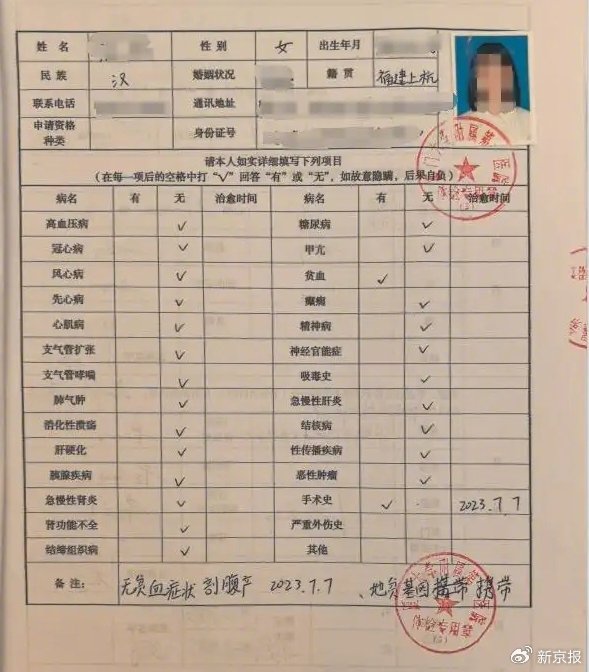 姓 名 性 别 女 出生年月
民 族 汉 婚姻状况 籍 贯 福建上杭
联系电话 通讯地址
申请资格种类 身份证号
请本人如实详细填写下列项目
(在每一项后的空格中打“√”回答“有”或“无”,如故意隐瞒,后果自负)
病名 有 无 治愈时间 病名 有 无 治愈时间
高血压病 ✓ 糖尿病 ✓
冠心病 ✓ 甲亢 ✓
风心病 ✓ 贫血 ✓
先心病 ✓ 癫痫 ✓
心肌病 ✓ 精神病 ✓
支气管扩张 ✓ 神经官能症 ✓
支气管哮喘 ✓ 吸毒史 ✓
肺气肿 ✓ 急慢性肝炎 ✓
消化性溃疡 ✓ 结核病 ✓
肝硬化 ✓ 性传播疾病 ✓
胰腺疾病 ✓ 恶性肿瘤 ✓
急慢性肾炎 ✓ 手术史 ✓ 2023.7.7
肾功能不全 ✓ 严重外伤史
结缔组织病 ✓ 其他
备 注: 无贫血症状 剖腹产 2023.7.7 、地贫基因携带 携带
新京报